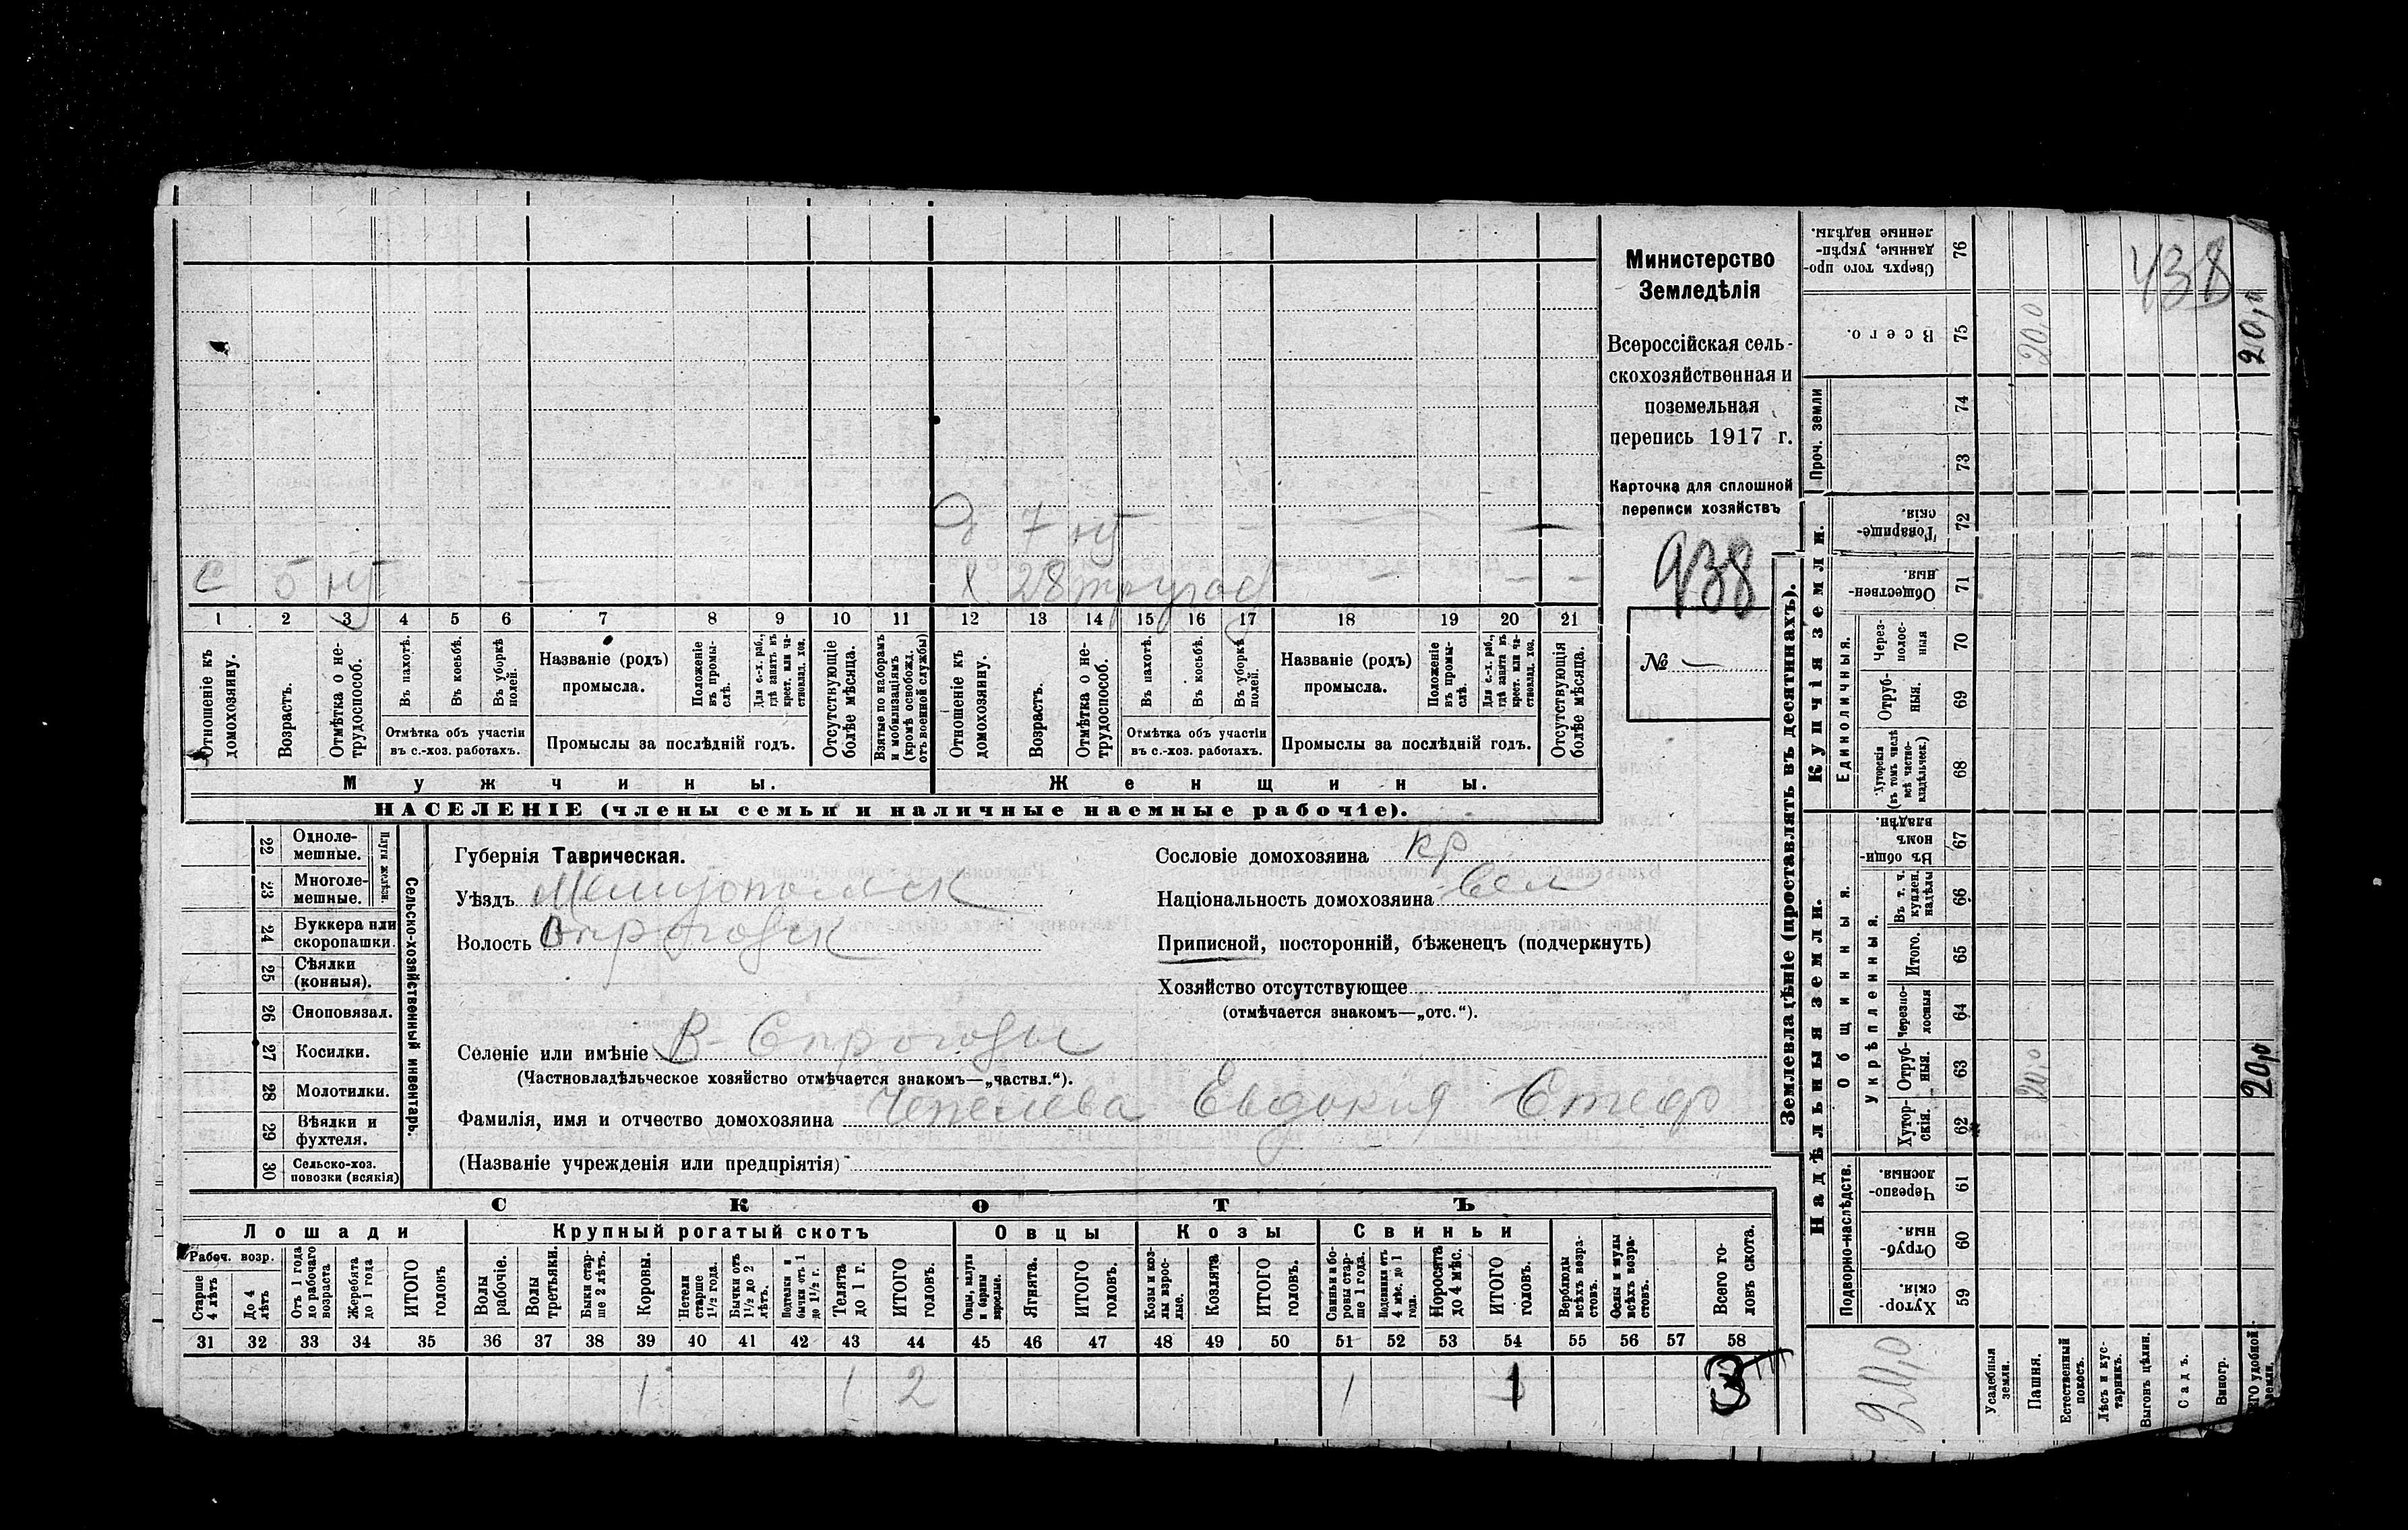 Министерство
Земледѣлія
Всероссійская сель-
скохозяйственная и
поземельная
перепись 1917 г.
Карточка для сплошной
переписи хозяйствъ
938
№ —
д 7 н/т — — —
С 5 н/т —
х 28 — — —
1 2 3 4 5 6 7 8 9 10 11 12 13 14 15 16 17 18 19 20 21
Отношеніе къ домохозяину.
Возрастъ.
Отмѣтка о не-трудоспособ.
Въ пахотѣ.
Въ косьбѣ.
Въ уборкѣ полей.
Отмѣтка объ участіи
въ с.-хоз. работахъ.
Названіе (родъ)
промысла.
Положеніе въ промы-слѣ.
Для с.-х. раб., гдѣ занятъ въ крест. или ча-ствовлад. хоз.
Промыслы за послѣдній годъ.
Отсутствующіе болѣе мѣсяца.
Взятые по наборамъ и мобилизаціямъ (кромѣ освобожд. отъ военной службы)
Отношеніе къ домохозяину.
Возрастъ.
Отмѣтка о не-трудоспособ.
Въ пахотѣ.
Въ косьбѣ.
Въ уборкѣ полей.
Отмѣтка объ участіи
въ с.-хоз. работахъ.
Названіе (родъ)
промысла.
Положеніе въ промы-слѣ.
Для с.-х. раб., гдѣ занята въ крест. или ча-ствовлад. хоз.
Промыслы за послѣдній годъ.
Отсутствующія болѣе мѣсяца.
Мужчины.
Женщины.
НАСЕЛЕНІЕ (члены семьи и наличные наемные рабочіе).
Сельско-хозяйственный инвентарь.
Плуги желѣзн.
22 Одноле-мешные.
23 Многоле-мешные.
24 Буккера или скоропашки.
25 Сѣялки (конныя).
26 Сноповязал.
27 Косилки.
28 Молотилки.
29 Вѣялки и фухтеля.
30 Сельско-хоз. повозки (всякія)
Губернія Таврическая.
Уѣздъ Мелитопольск
Волость Строгодск
Сословіе домохозяина кр
Національность домохозяина Вел
Приписной, посторонній, бѣженецъ (подчеркнуть)
Хозяйство отсутствующее
(отмѣчается знакомъ—„отс.“).
Селеніе или имѣніе В-Строгоды
(Частновладѣльческое хозяйство отмѣчается знакомъ—„частвл.“).
Фамилія, имя и отчество домохозяина Чепелева Евдокия Стеф
(Названіе учрежденія или предпріятія)
СКОТЪ
Лошади
Крупный рогатый скотъ
Овцы
Козы
Свиньи
Рабоч. возр.
Старше 4 лѣтъ
До 4 лѣтъ
Отъ 1 года до рабочаго возраста
Жеребята до 1 года
ИТОГО головъ
Волы рабочіе.
Волы третьяки.
Быки стар-ше 2 лѣтъ.
Коровы.
Нетели старше 1½ года.
Бычки отъ 1½ до 2 лѣтъ.
Подтелки и бычки отъ 1 до 1½ г.
Телята до 1 г.
ИТОГО головъ.
Овцы, валухи и бараны взрослые.
Ягнята.
ИТОГО головъ.
Козы и коз-лы взрос-лые.
Козлята
ИТОГО головъ.
Свиньи и бо-ровы стар-ше 1 года.
Подсвинки отъ 4 мѣс. до 1 года.
Поросята до 4 мѣс.
ИТОГО головъ.
Верблюды всѣхъ возра-стовъ.
Ослы и мулы всѣхъ возра-стовъ.
Всего го-ловъ скота.
31 32 33 34 35 36 37 38 39 40 41 42 43 44 45 46 47 48 49 50 51 52 53 54 55 56 57 58
1 1 2 1 1 3
Землевладѣніе (проставлять въ десятинахъ).
Надѣльныя земли.
Купчія земли.
Проч. земли
Подворно-наслѣдств.
Общинныя.
Укрѣпленныя.
Единоличныя.
Сверхъ того про-данные, укрѣп-ленные надѣлы. 76
Всего. 75
74
73
Товарище-скія. 72
Обществен-ныя. 71
Через-полос-ныя 70
Отруб-ныя. 69
Хуторскія (въ томъ числѣ всѣ частно-владѣльческ.) 68
Въ общин-номъ владѣн. 67
Въ т. ч. куплен. надѣлы 66
Итого. 65
Черезпо-лосныя 64
Отруб-ныя. 63
Хутор-скія. 62
Черезпо-лосныя. 61
Отруб-ныя. 60
Хутор-скія. 59
Усадебныя земли.
Пашня.
Естественный покосъ.
Лѣсъ и кус-тарникъ.
Выгонъ цѣлин.
Садъ.
Виногр.
438
20,0
20,0
20,0
20,0
20,0